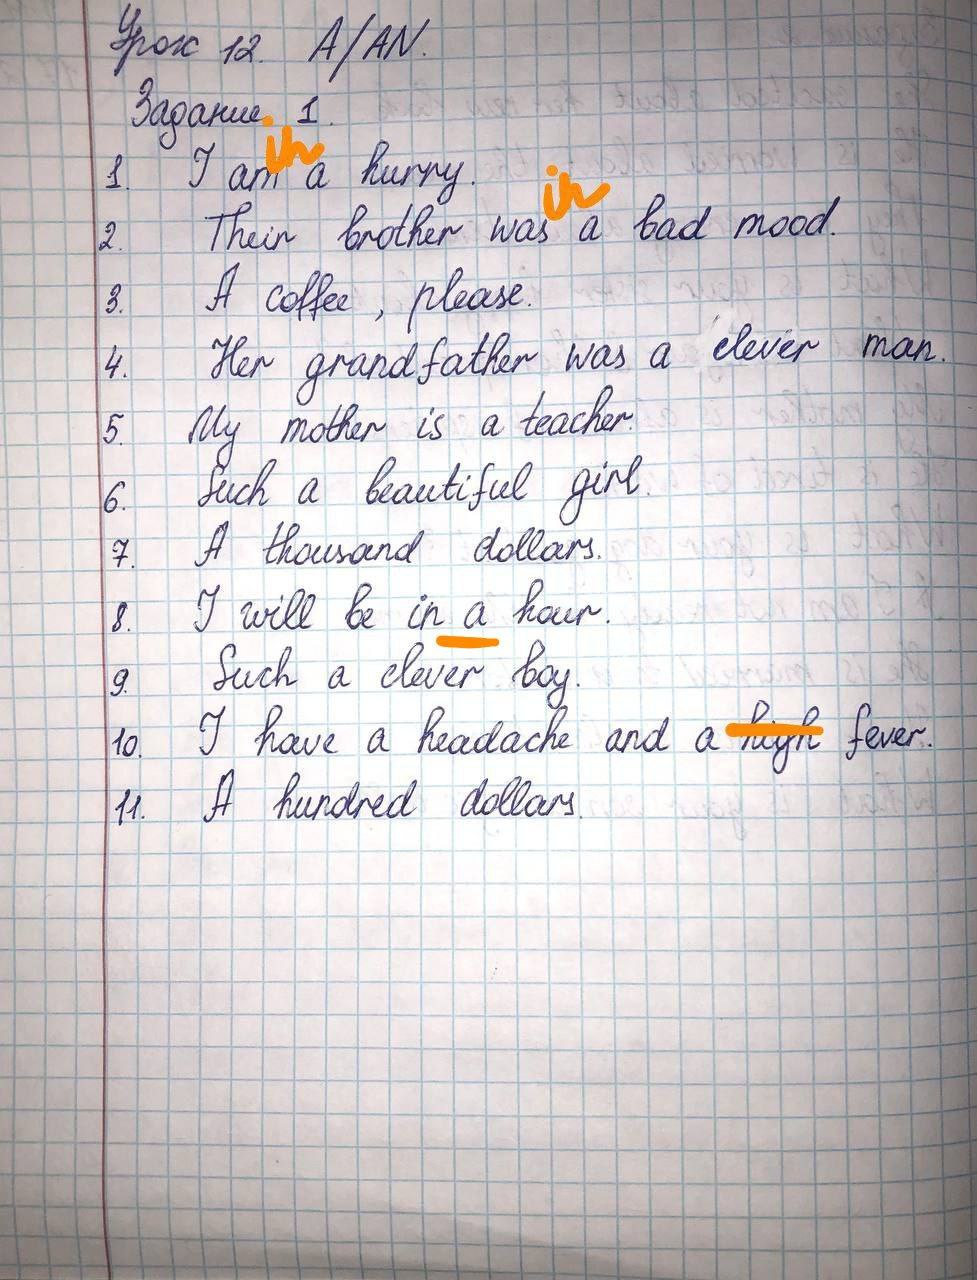 Урок 12. A/AN.
Задание 1.
in
1. I am a hurry.
in
2. Their brother was a bad mood.
3. A coffee, please.
4. Her grandfather was a clever man.
5. My mother is a teacher.
6. Such a beautiful girl.
7. A thousand dollars.
8. I will be in a hour.
9. Such a clever boy.
10. I have a headache and a high fever.
11. A hundred dollars.